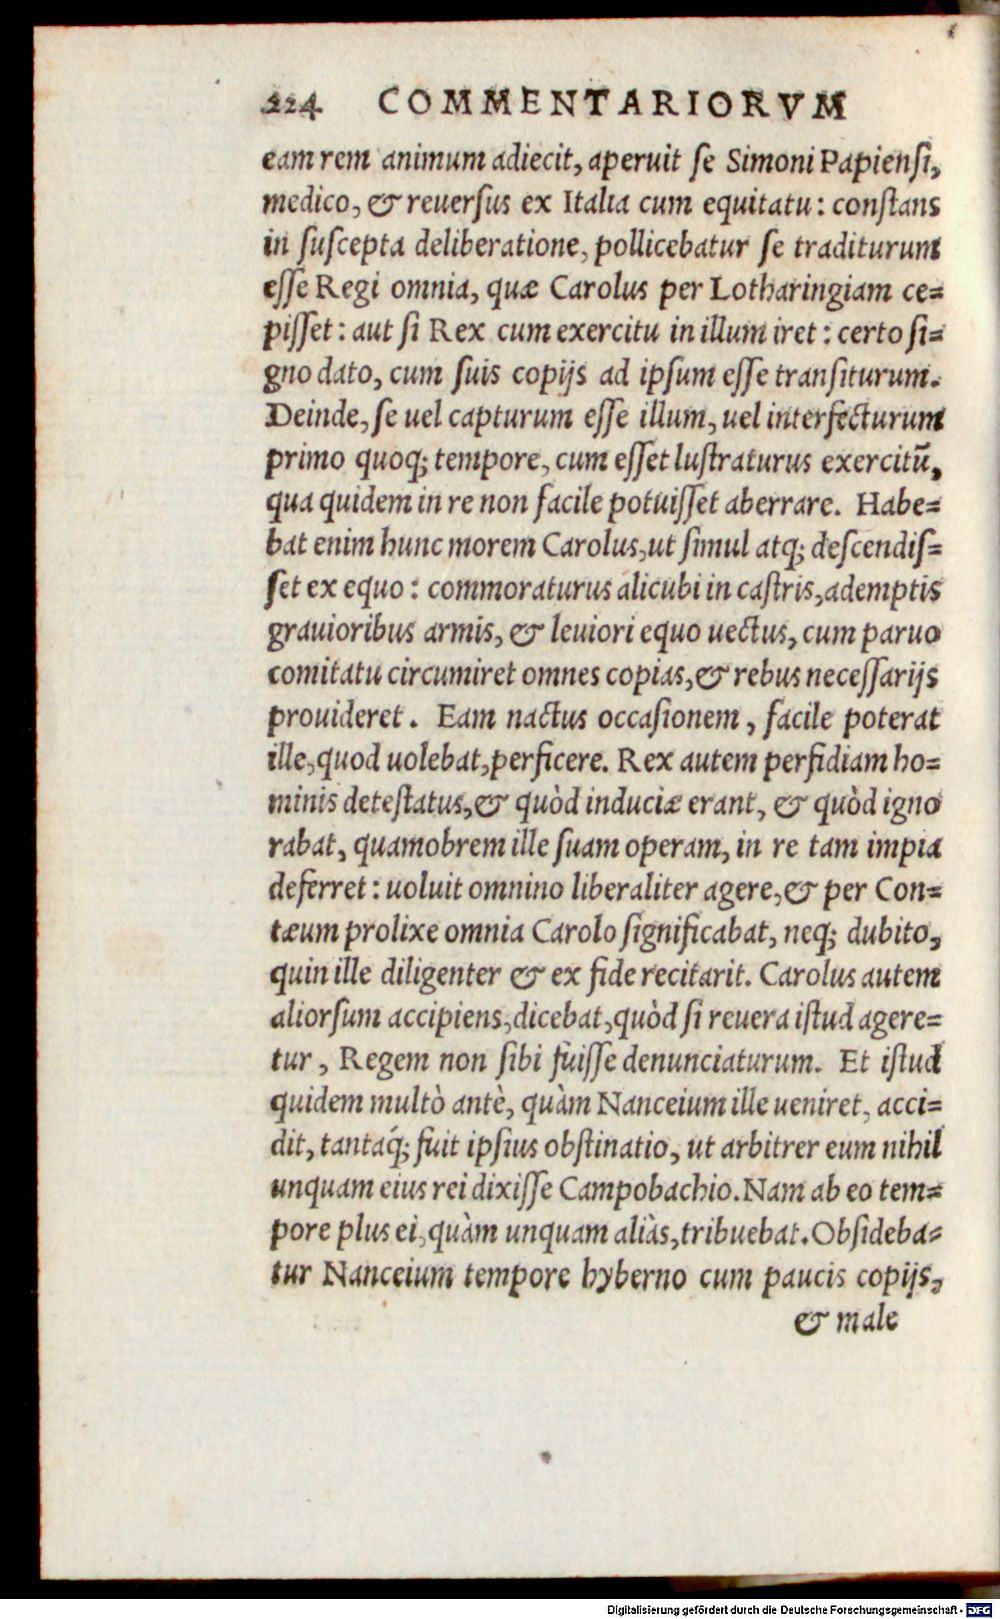 224 COMMENTARIORVM
eam rem animum adiecit, aperuit se Simoni Papiensi,
medico, & reuersus ex Italia cum equitatu: constans
in suscepta deliberatione, pollicebatur se traditurum
esse Regi omnia, quæ Carolus per Lotharingiam ce=
pisset: aut si Rex cum exercitu in illum iret: certo si=
gno dato, cum suis copijs ad ipsum esse transiturum.
Deinde, se uel capturum esse illum, uel interfecturum
primo quoq; tempore, cum esset lustraturus exercitū,
qua quidem in re non facile potuisset aberrare. Habe=
bat enim hunc morem Carolus, ut simul atq; descendis=
set ex equo: commoraturus alicubi in castris, ademptis
grauioribus armis, & leuiori equo uectus, cum paruo
comitatu circumiret omnes copias, & rebus necessarijs
prouideret. Eam nactus occasionem, facile poterat
ille, quod uolebat, perficere. Rex autem perfidiam ho=
minis detestatus, & quòd induciæ erant, & quòd igno
rabat, quamobrem ille suam operam, in re tam impia
deferret: uoluit omnino liberaliter agere, & per Con=
tæum prolixe omnia Carolo significabat, neq; dubito,
quin ille diligenter & ex fide recitarit. Carolus autem
aliorsum accipiens, dicebat, quòd si reuera istud agere=
tur, Regem non sibi fuisse denunciaturum. Et istud
quidem multò antè, quàm Nanceium ille ueniret, acci=
dit, tantaq́; fuit ipsius obstinatio, ut arbitrer eum nihil
unquam eius rei dixisse Campobachio. Nam ab eo tem=
pore plus ei, quàm unquam aliàs, tribuebat. Obsideba=
tur Nanceium tempore hyberno cum paucis copijs,
& male
Digitalisierung gefördert durch die Deutsche Forschungsgemeinschaft - DFG